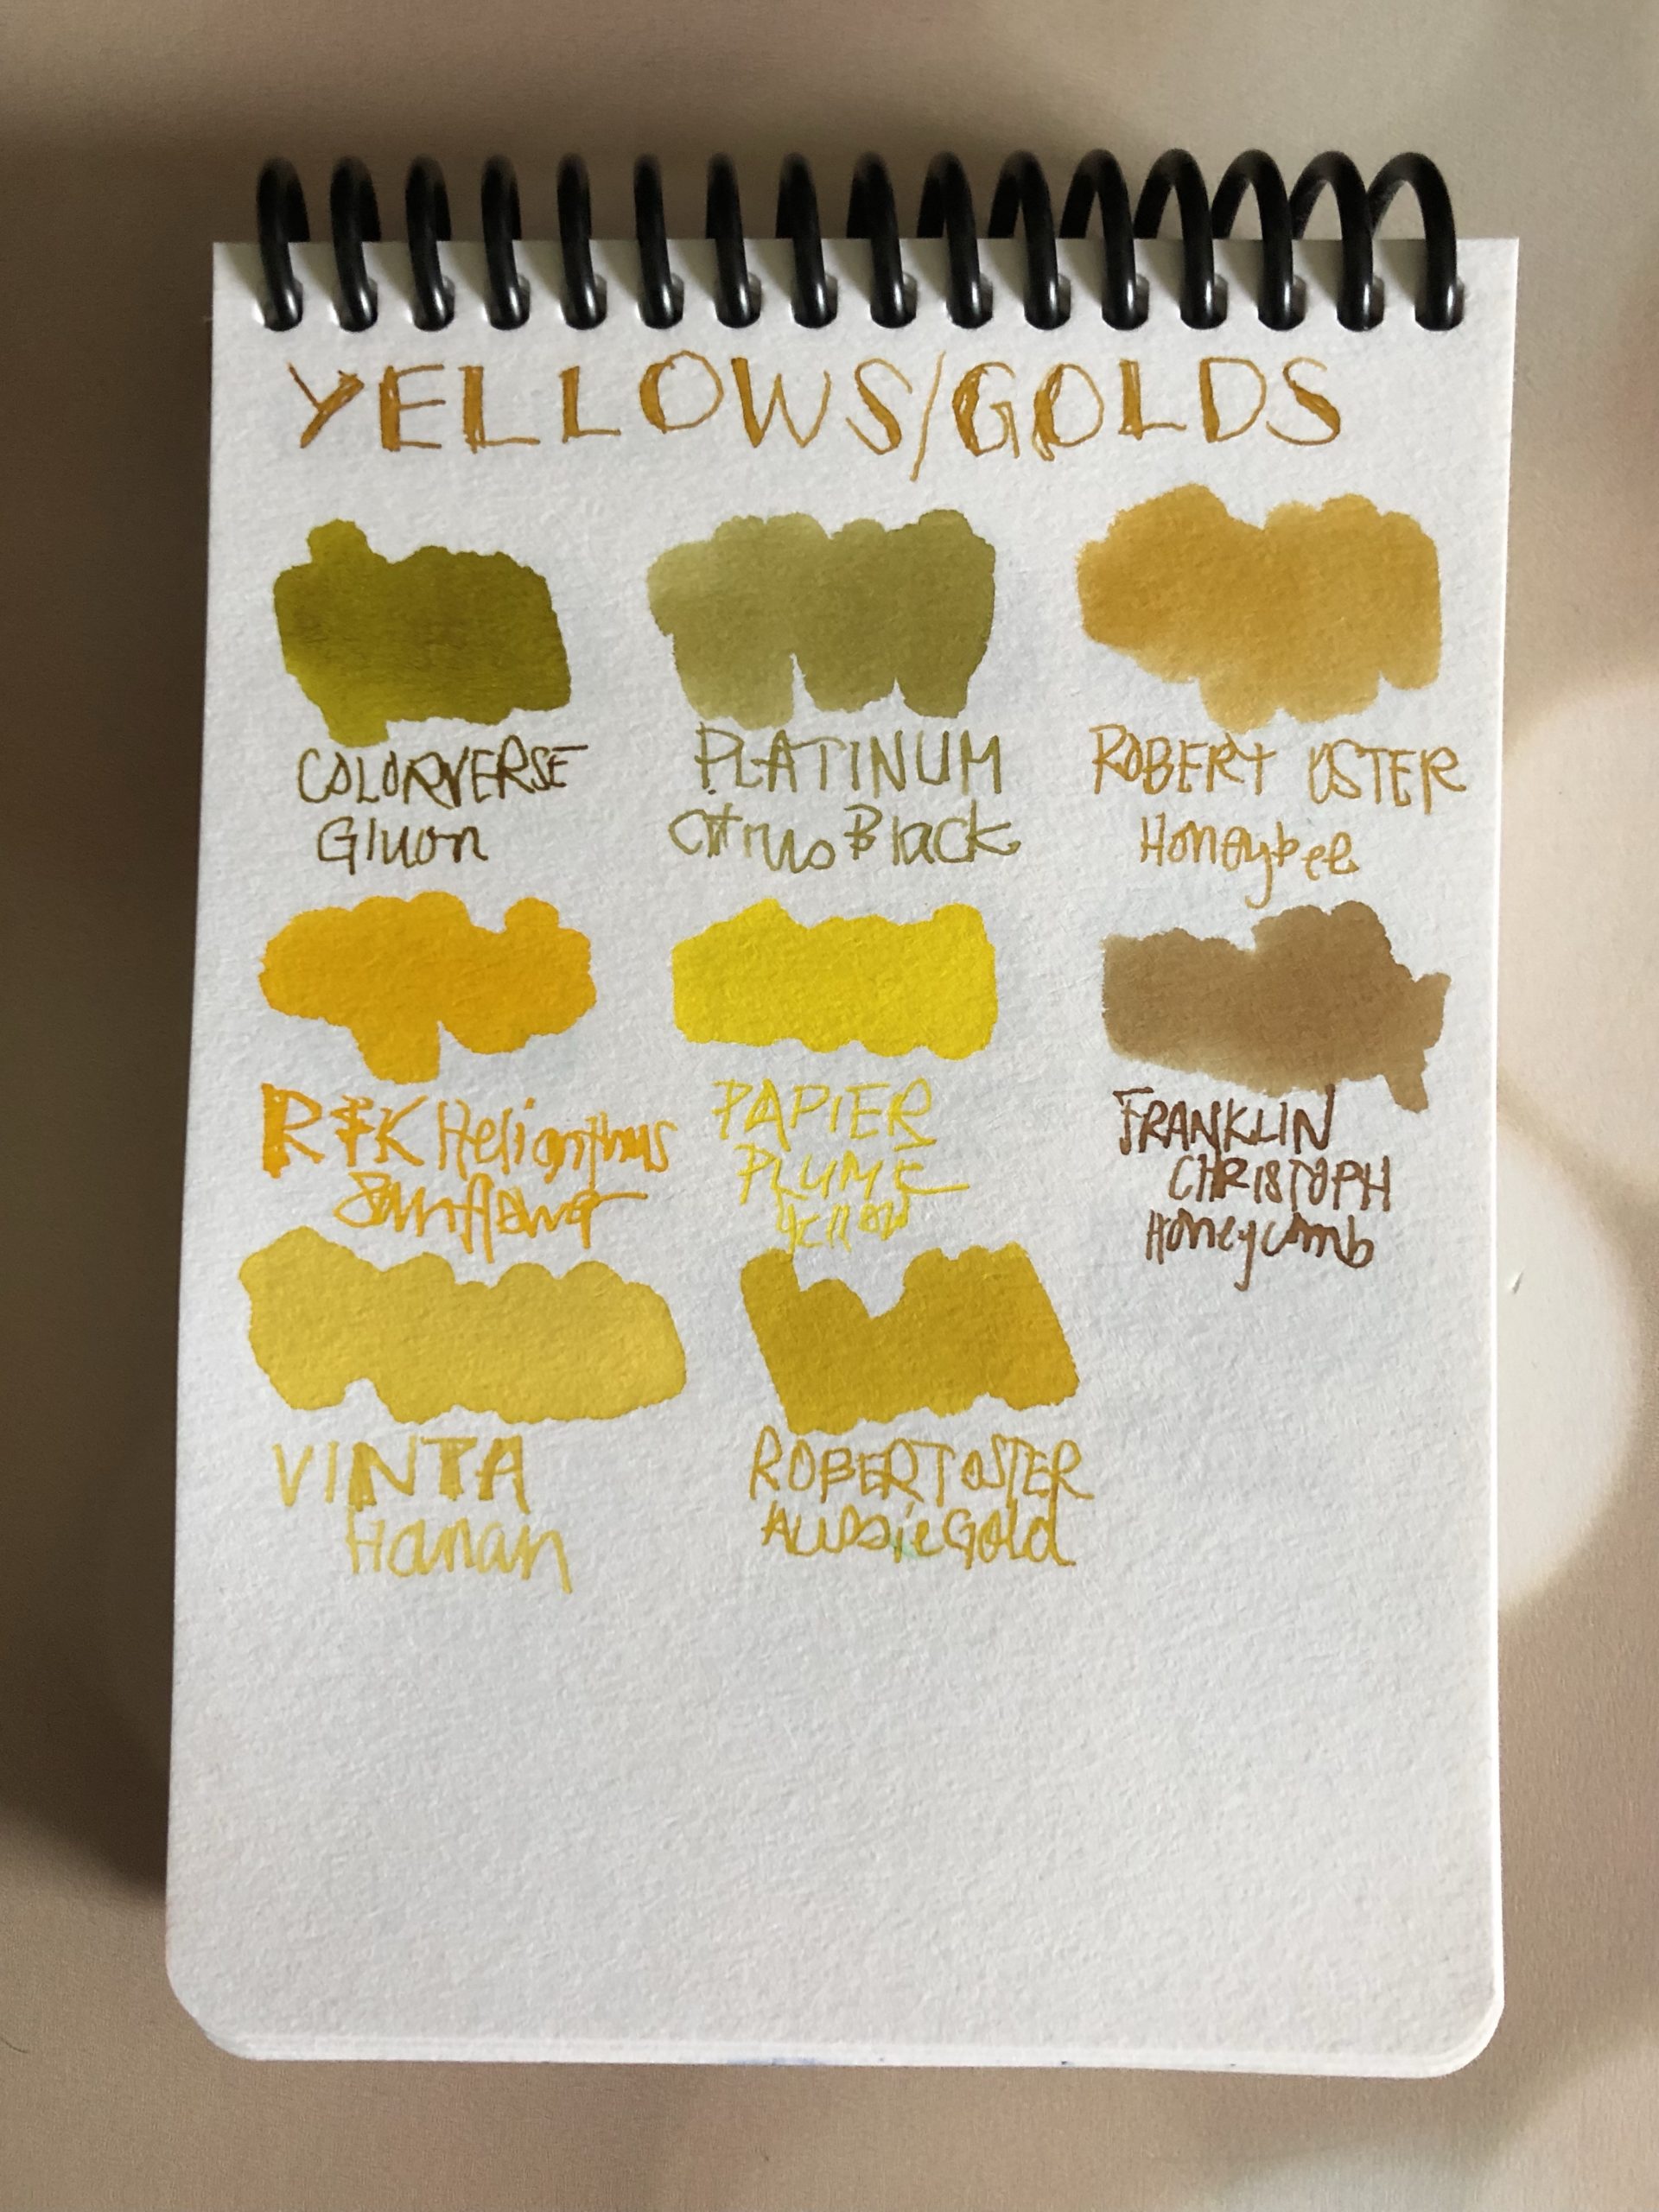 YELLOWS/GOLDS
COLORVERSE
Gluon
PLATINUM
Citrus Black
ROBERT OSTER
Honeybee
R+K Helianthus
Sunflower
PAPIER
PLUME
Yellow
FRANKLIN
CHRISTOPH
Honeycomb
VINTA
Hanan
ROBERT OSTER
Aussie Gold